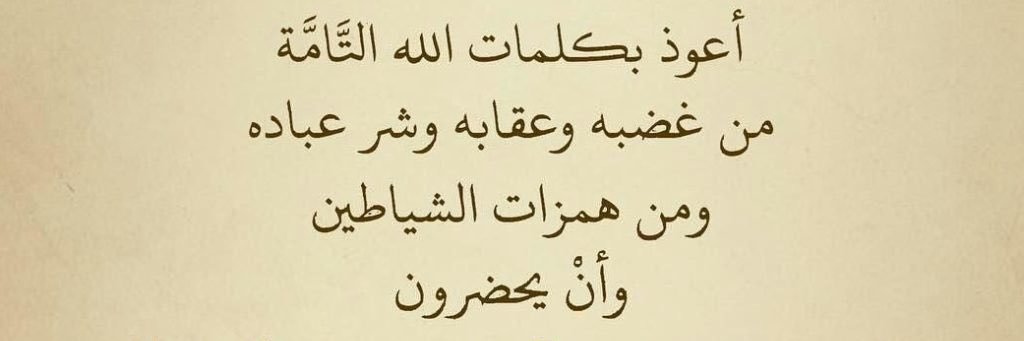 أعوذ بكلمات الله التَّامَّة
من غضبه وعقابه وشر عباده
ومن همزات الشياطين
وأنْ يحضرون